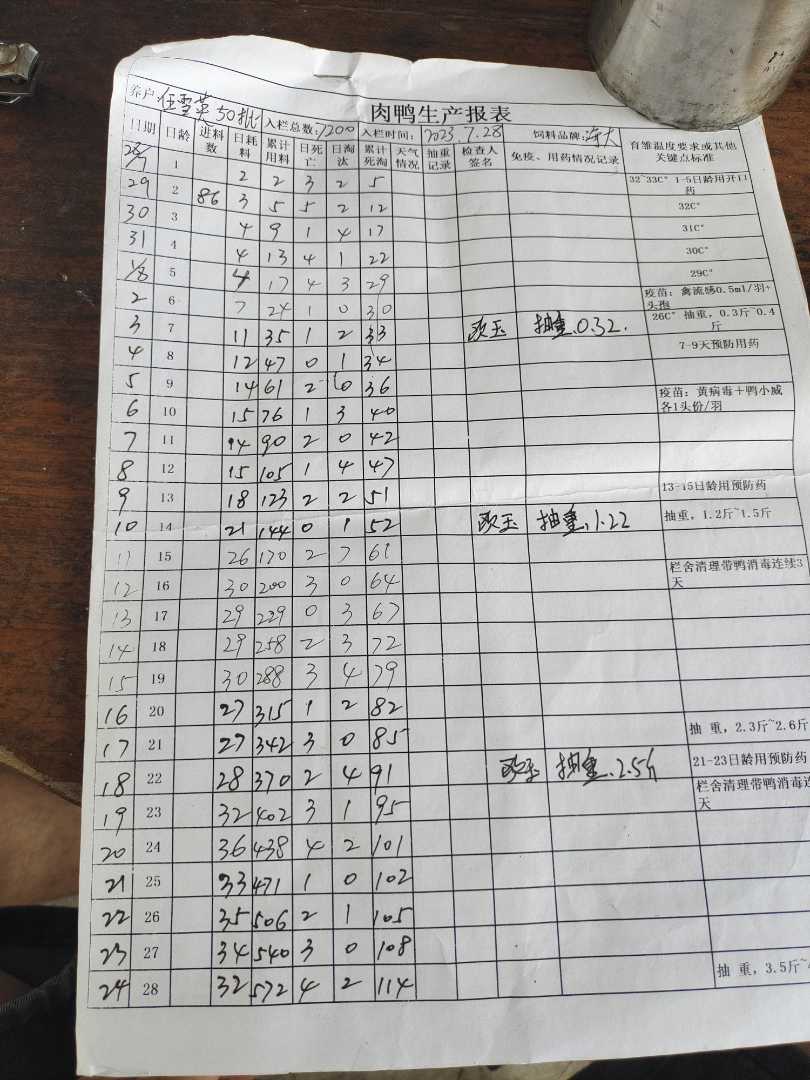 肉鸭生产报表
养户: 任雪英 50批 入栏总数: 7200 入栏时间: 2023.7.28 饲料品牌: 海大
日期 日龄 进料数 日耗料 累计用料 日死亡 日淘汰 累计死淘 天气情况 抽重记录 检查人签名 免疫、用药情况记录 育雏温度要求或其他关键点标准
28/7 1 2 2 3 2 5
29 2 86 3 5 5 2 12 32~33C° 1-5日龄用开口药
30 3 4 9 1 4 17 32C°
31 4 4 13 4 1 22 31C°
1/8 5 4 17 4 3 29 30C°
2 6 7 24 1 0 30 29C°
3 7 11 35 1 2 33 欧玉 抽重.0.32. 疫苗: 禽流感0.5ml/羽+头孢
26C° 抽重, 0.3斤~0.4斤
4 8 12 47 0 1 34 7-9天预防用药
5 9 14 61 2 0 36
6 10 15 76 1 3 40 疫苗: 黄病毒+鸭小威各1头份/羽
7 11 14 90 2 0 42
8 12 15 105 1 4 47
9 13 18 123 2 2 51 13-15日龄用预防药
10 14 21 144 0 1 52 欧玉 抽重.1.22 抽重, 1.2斤~1.5斤
11 15 26 170 2 7 61
12 16 30 200 3 0 64 栏舍清理带鸭消毒连续3天
13 17 29 229 0 3 67
14 18 29 258 2 3 72
15 19 30 288 3 4 79
16 20 27 315 1 2 82
17 21 27 342 3 0 85 抽 重, 2.3斤~2.6斤
18 22 28 370 2 4 91 欧玉 抽重.2.5斤 21-23日龄用预防药
19 23 32 402 3 1 95 栏舍清理带鸭消毒连天
20 24 36 438 4 2 101
21 25 33 471 1 0 102
22 26 35 506 2 1 105
23 27 34 540 3 0 108
24 28 32 572 4 2 114 抽 重, 3.5斤~